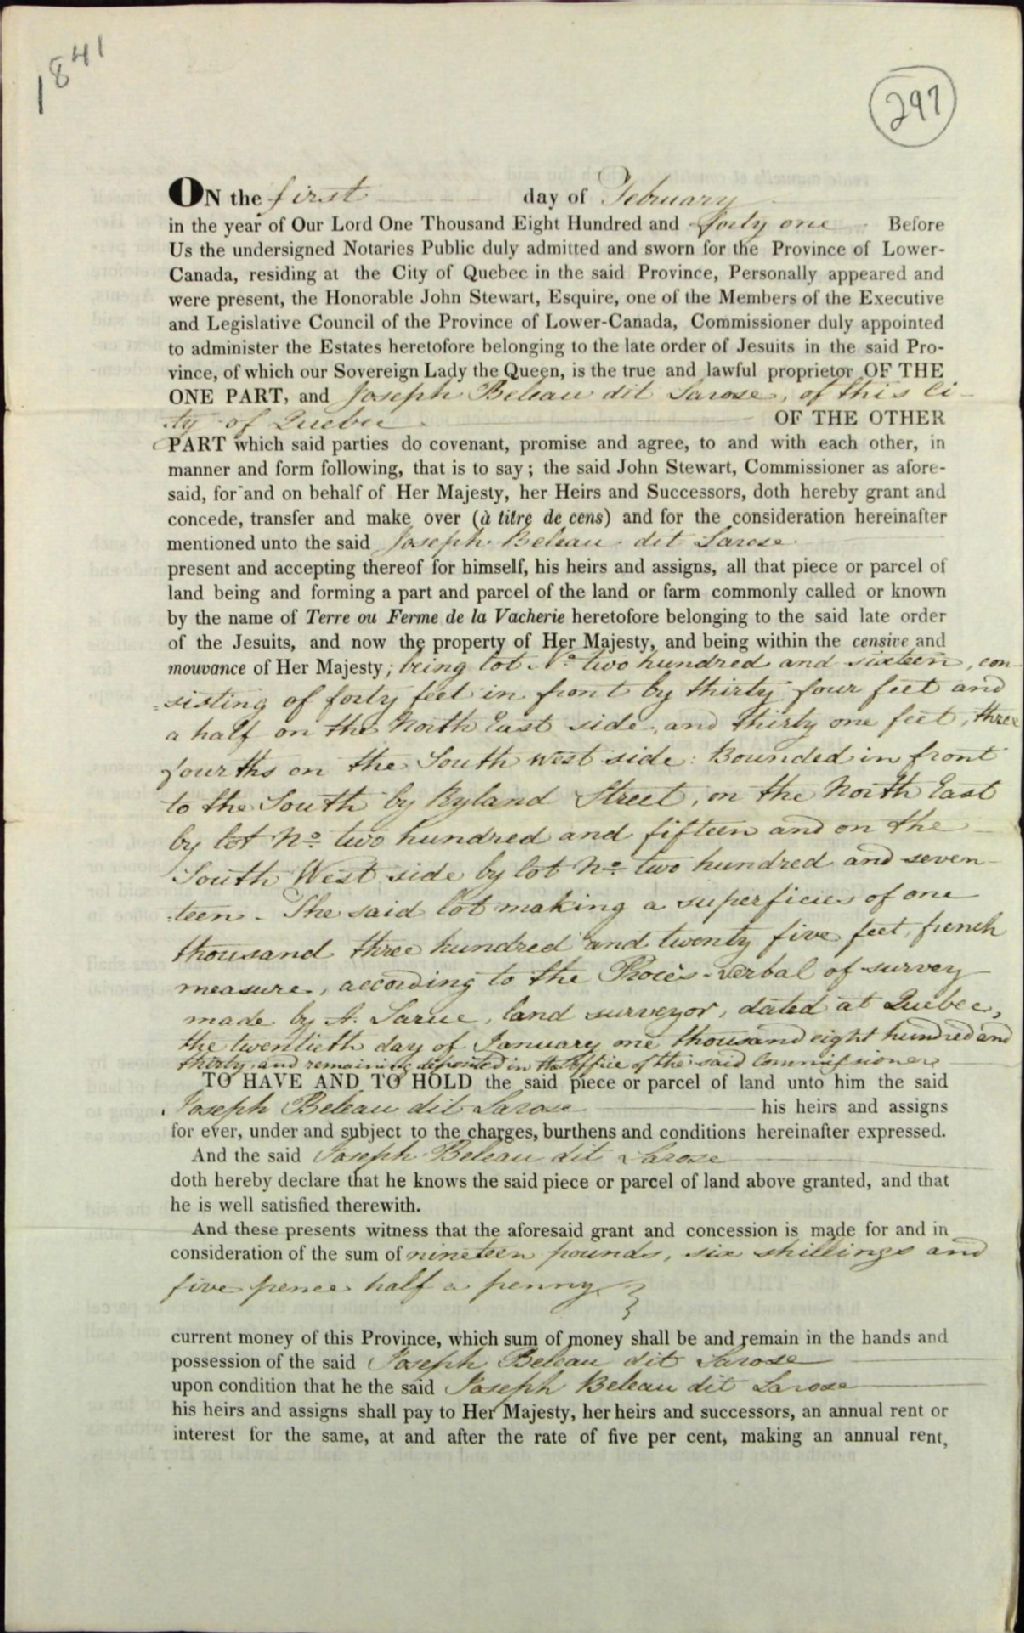 1841
297
ON the first day of February
in the year of Our Lord One Thousand Eight Hundred and forty one Before
Us the undersigned Notaries Public duly admitted and sworn for the Province of Lower-
Canada, residing at the City of Quebec in the said Province, Personally appeared and
were present, the Honorable John Stewart, Esquire, one of the Members of the Executive
and Legislative Council of the Province of Lower-Canada, Commissioner duly appointed
to administer the Estates heretofore belonging to the late order of Jesuits in the said Pro-
vince, of which our Sovereign Lady the Queen, is the true and lawful proprietor OF THE
ONE PART, and Joseph Beleau dit Larose, of this Ci-
ty of Quebec OF THE OTHER
PART which said parties do covenant, promise and agree, to and with each other, in
manner and form following, that is to say; the said John Stewart, Commissioner as afore-
said, for and on behalf of Her Majesty, her Heirs and Successors, doth hereby grant and
concede, transfer and make over (à titre de cens) and for the consideration hereinafter
mentioned unto the said Joseph Beleau dit Larose
present and accepting thereof for himself, his heirs and assigns, all that piece or parcel of
land being and forming a part and parcel of the land or farm commonly called or known
by the name of Terre ou Ferme de la Vacherie heretofore belonging to the said late order
of the Jesuits, and now the property of Her Majesty, and being within the censive and
mouvance of Her Majesty; being lot No two hundred and sixteen, con
=sisting of forty feet in front by thirty four feet and
a half on the North East side, and thirty one feet, three
fourths on the South west side: Bounded in front
to the South by Ryland Street, on the North East
by lot No two hundred and fifteen and on the
South West side by lot No two hundred and seven-
teen. The said lot making a superficies of one
thousand three hundred and twenty five feet, french
measure, according to the Procès-verbal of survey
made by A. Larue, land surveyor, dated at Quebec,
the twentieth day of January one thousand eight hundred and
thirty and remaining deposited in the office of the said Commissioner
TO HAVE AND TO HOLD the said piece or parcel of land unto him the said
Joseph Beleau dit Larose his heirs and assigns
for ever, under and subject to the charges, burthens and conditions hereinafter expressed.
And the said Joseph Beleau dit Larose
doth hereby declare that he knows the said piece or parcel of land above granted, and that
he is well satisfied therewith.
And these presents witness that the aforesaid grant and concession is made for and in
consideration of the sum of nineteen pounds, six shillings and
five pence half a penny
current money of this Province, which sum of money shall be and remain in the hands and
possession of the said Joseph Beleau dit Larose
upon condition that he the said Joseph Beleau dit Larose
his heirs and assigns shall pay to Her Majesty, her heirs and successors, an annual rent or
interest for the same, at and after the rate of five per cent, making an annual rent,